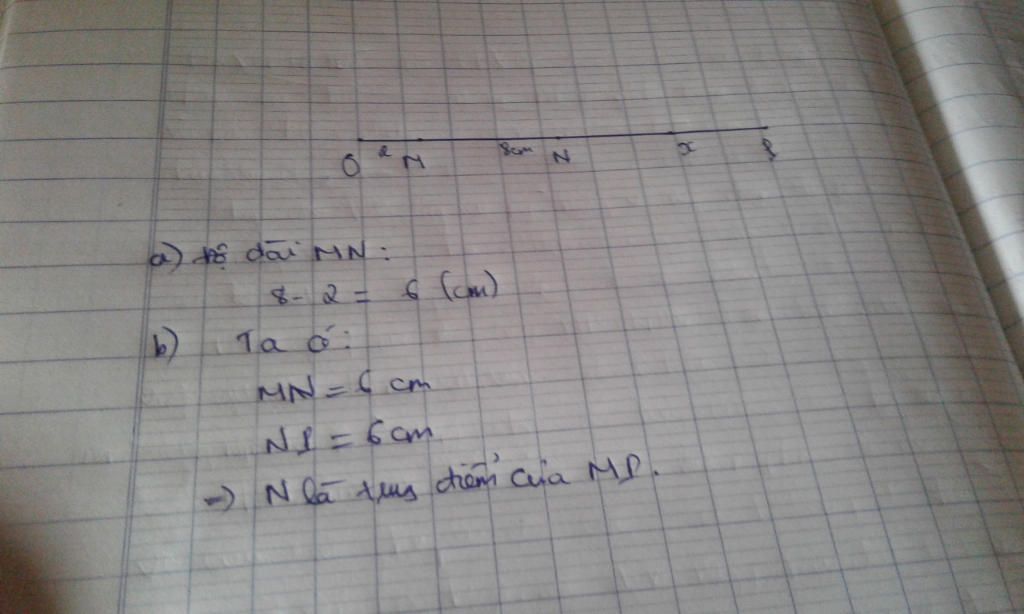 O 2 M 8cm N x P
a) Độ dài MN:
8 - 2 = 6 (cm)
b) Ta có:
MN = 6 cm
NP = 6 cm
=> N là trung điểm của MP.